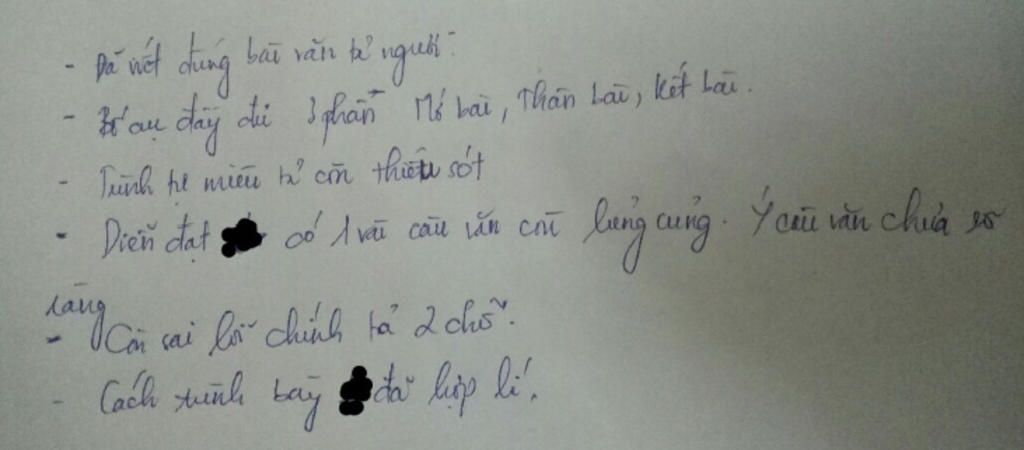 - Đã viết đúng bài văn tả người.
- Bố cục đầy đủ 3 phần Mở bài, Thân bài, Kết bài.
- Trình tự miêu tả còn thiếu sót
- Diễn đạt có 1 vài câu văn còn lủng củng. Ý câu văn chưa rõ
ràng
- Còn sai lỗi chính tả 2 chỗ.
- Cách trình bày đã hợp lí.